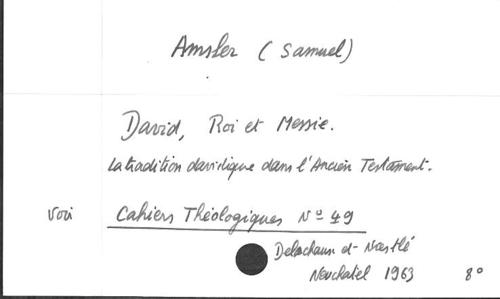 Amsler (Samuel)
David, Roi et Messie.
La tradition davidique dans l'Ancien Testament.
Voir Cahiers Théologiques Nº 49
Delachaux et Nestlé
Neuchatel 1963 8º